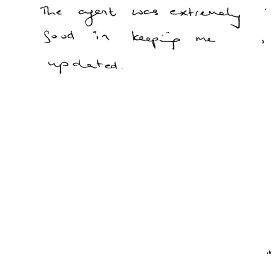 The agent was extremely
good in keeping me
updated.